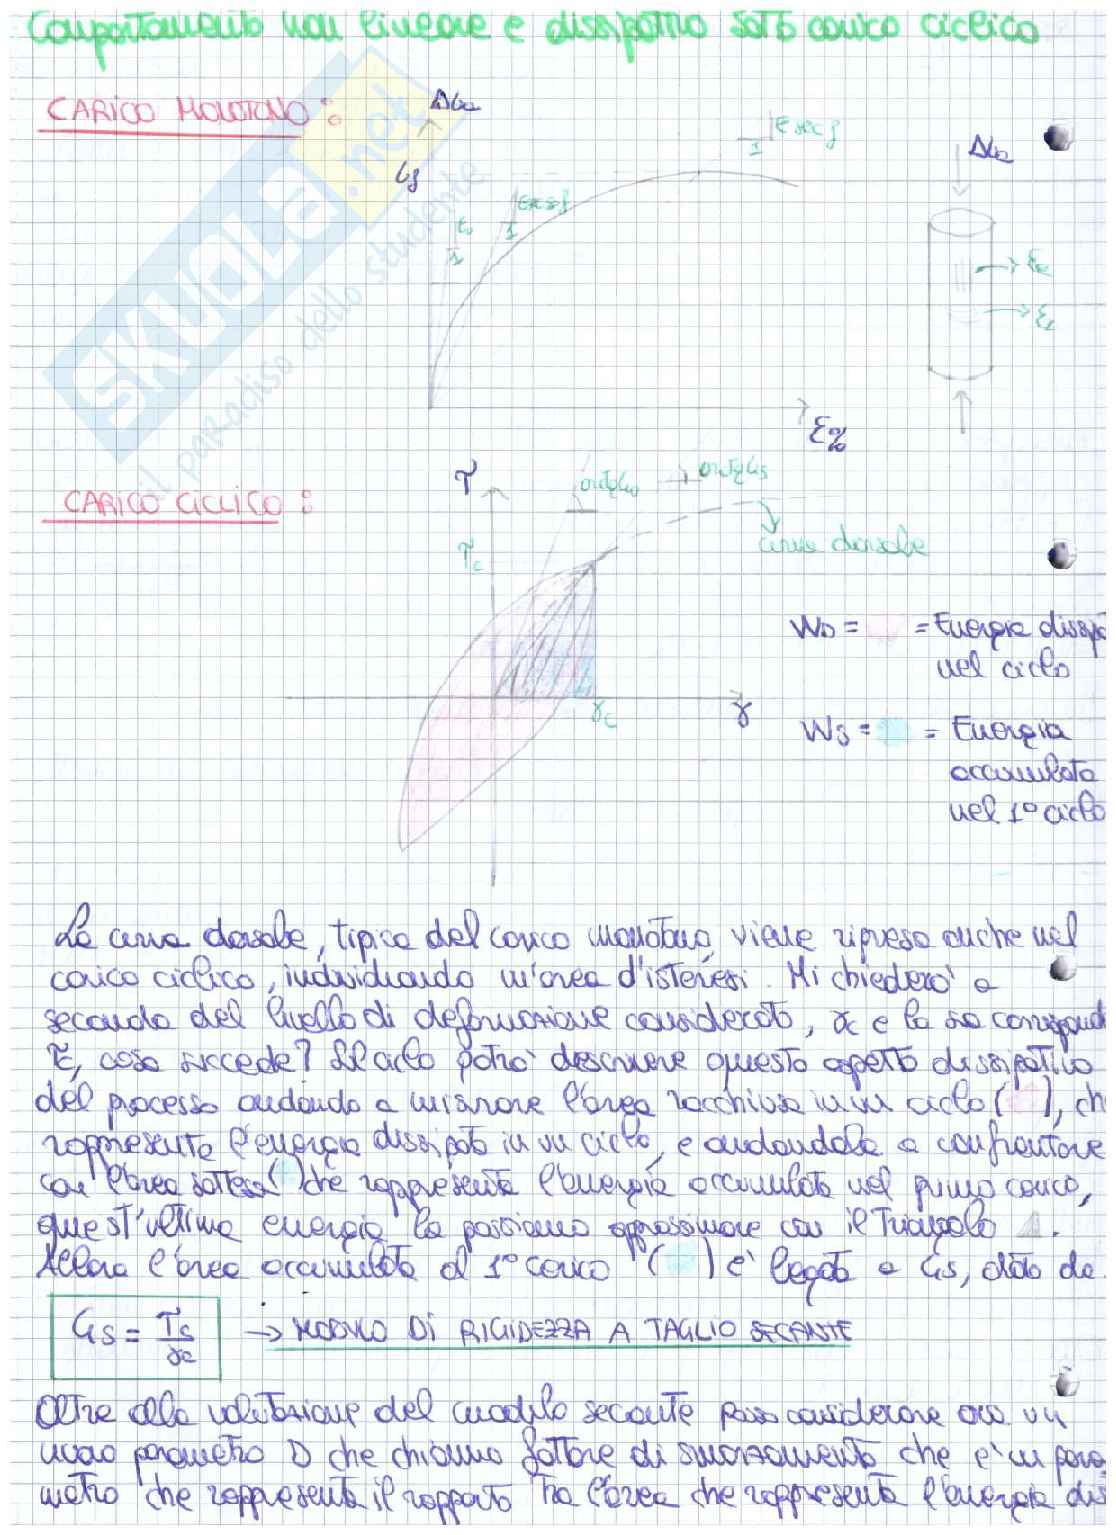 Comportamento non lineare e dissipativo sotto carico ciclico
CARICO MONOTONO:
Δσa
σf
E0
1
Esecf
1
Esecf
1
Δσa
εa
εr
ε%
SKUOLA.net
il paradiso dello studente
CARICO CICLICO:
τ
τc
arctgG0
arctgGs
curva dorsale
γc
γ
WD = = Energia dissipa
nel ciclo
WS = = Energia
accumulata
nel 1° ciclo
La curva dorsale, tipica del carico monotono, viene ripresa anche nel
carico ciclico, individuando un'area d'isteresi. Mi chiederò a
seconda del livello di deformazione considerato, γc e la sua corrispond
τc, cosa succede? Il ciclo potrà descrivere questo aspetto dissipativo
del processo andando a misurare l'area racchiusa in un ciclo ( ), ch
rappresenta l'energia dissipata in un ciclo, e andandola a confrontare
con l'area sottesa ( ) che rappresenta l'energia accumulata nel primo carico,
quest'ultima energia la possiamo approssimare con il triangolo .
Allora l'area accumulata al 1° carico ( ) è legata a Gs, dato da
Gs = τc/γc → MODULO DI RIGIDEZZA A TAGLIO SECANTE
Oltre alla valutazione del modulo secante posso considerare ora un
nuovo parametro D che chiamo fattore di smorzamento che è un para
metro che rappresenta il rapporto tra l'area che rappresenta l'energia dis